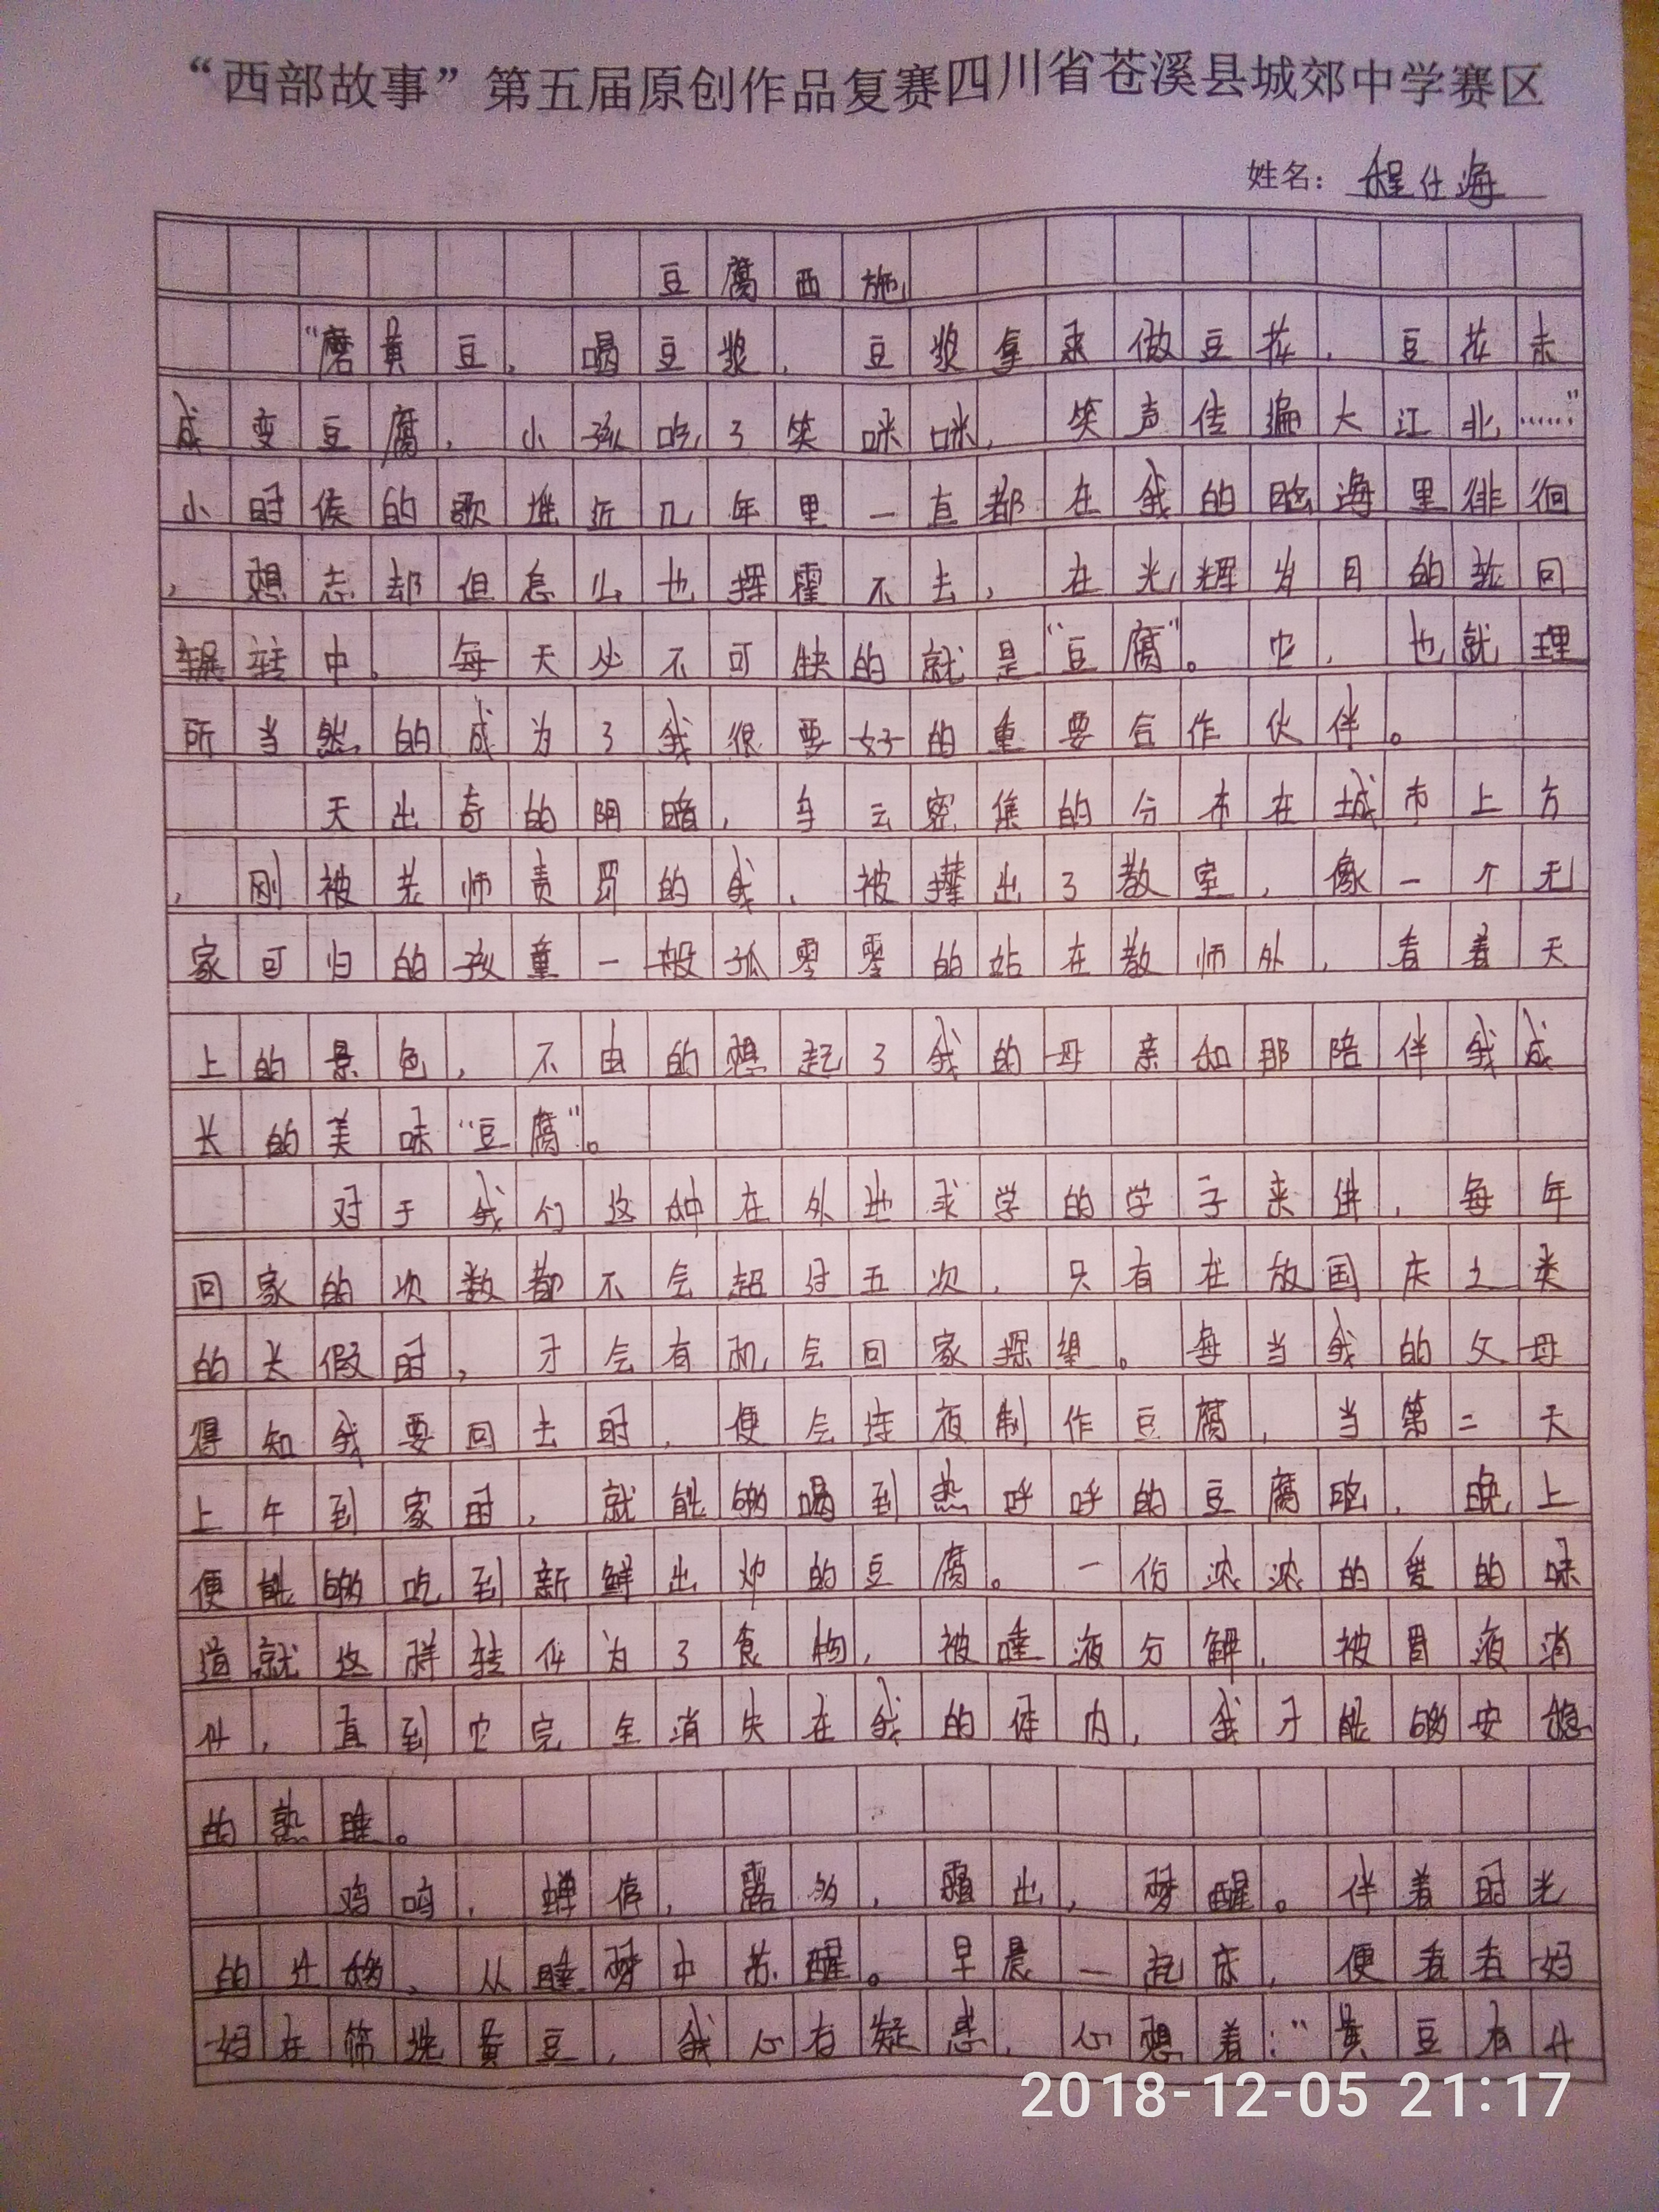 “西部故事”第五届原创作品复赛四川省苍溪县城郊中学赛区
姓名：程仕海
豆腐西施
“磨黄豆，喝豆浆，豆浆拿来做豆花，豆花未
成变豆腐，小孩吃了笑咪咪，笑声传遍大江北……”
小时侯的歌谣近几年里一直都在我的脑海里徘徊
，想忘却但怎么也挥霍不去，在光辉岁月的轮回
辗转中。每天必不可缺的就是“豆腐”。它，也就理
所当然的成为了我很要好的重要合作伙伴。
天出奇的阴暗，乌云密集的分布在城市上方
，刚被老师责罚的我，被撵出了教室，像一个无
家可归的孩童一般孤零零的站在教师外，看着天
上的景色，不由的想起了我的母亲和那陪伴我成
长的美味“豆腐”。
对于我们这种在外地求学的学子来讲，每年
回家的次数都不会超过五次，只有在放国庆之类
的长假时，才会有机会回家探望。每当我的父母
得知我要回去时，便会连夜制作豆腐，当第二天
上午到家时，就能够喝到热呼呼的豆腐脑，晚上
便能够吃到新鲜出炉的豆腐。一份浓浓的爱的味
道就这样转化为了食物，被唾液分解，被胃液消
化，直到它完全消失在我的体内，我才能够安稳
的熟睡。
鸡鸣，蝉停，露多，霜出，梦醒。伴着时光
的，从睡梦中苏醒。早晨一起床，便看着妈
妈在筛选黄豆，我心有疑惑，心想着：“黄豆有什
2018-12-05 21:17